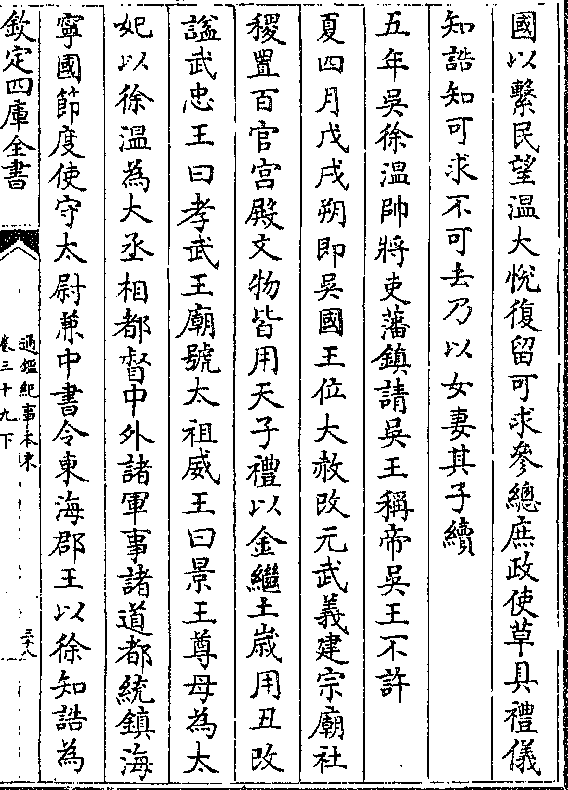 國以繫民望溫大悅復留可求參總庶政使草具禮儀
知誥知可求不可去乃以女妻其子續
五年吳徐溫帥將吏藩鎮請吳王稱帝吳王不許
夏四月戊戌朔即吳國王位大赦改元武義建宗廟社
稷置百官宮殿文物皆用天子禮以金繼土歲用丑改
諡武忠王曰孝武王廟號太祖威王曰景王尊母為太
妃以徐溫為大丞相都督中外諸軍事諸道都統鎮海
寧國節度使守太尉兼中書令東海郡王以徐知誥為
欽定四庫全書
通鑑紀事本末
卷三十九下
三十八